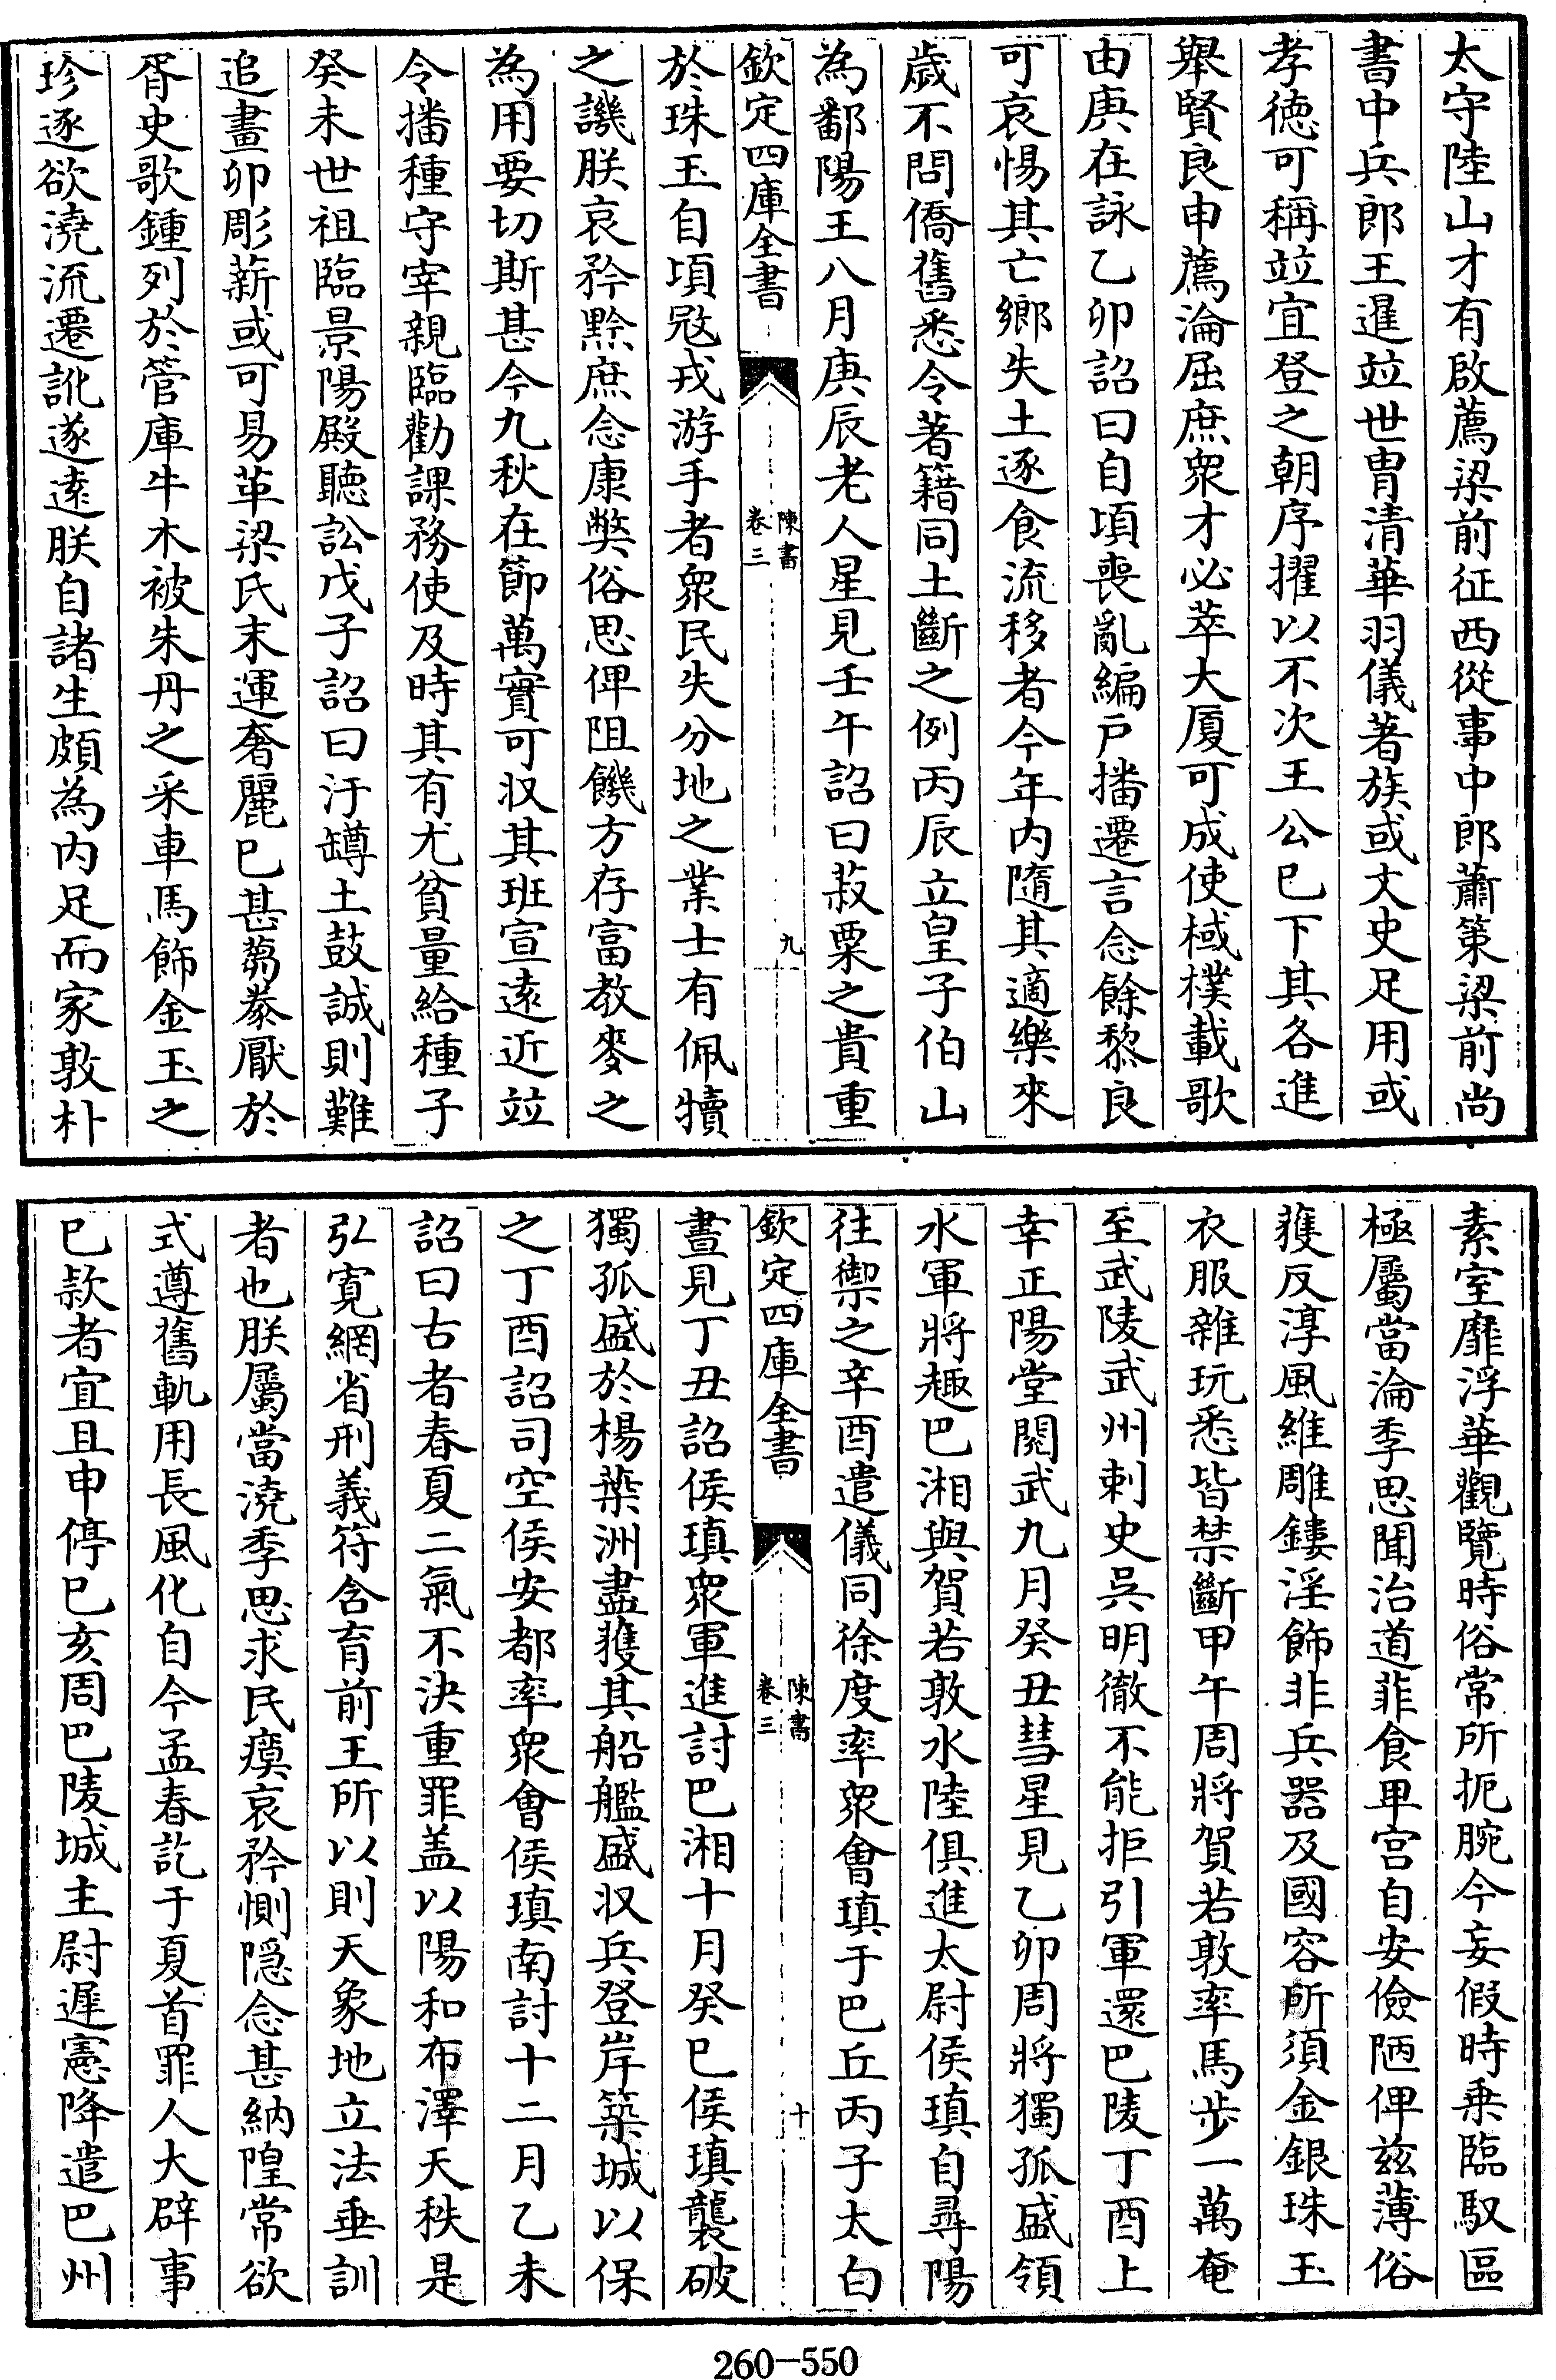 太守陸山才有啟薦梁前征西從事中郎蕭策梁前尚
書中兵郎王暹竝世胄清華羽儀著族或文史足用或
孝徳可稱竝宜登之朝序擢以不次王公已下其各進
舉賢良申薦淪屈庶衆才必萃大厦可成使棫樸載歌
由庚在詠乙卯詔曰自頃喪亂編户播遷言念餘黎良
可哀惕其亡鄉失土逐食流移者今年内隨其適樂來
歲不問僑舊悉令著籍同土斷之例丙辰立皇子伯山
為鄱陽王八月庚辰老人星見壬午詔曰菽粟之貴重
欽定四庫全書
陳書
卷三
九
於珠玉自頃冦戎游手者衆民失分地之業士有佩犢
之譏朕哀矜黔庶念康弊俗思俾阻饑方存富教麥之
為用要切斯甚今九秋在節萬實可收其班宣遠近竝
令播種守宰親臨勸課務使及時其有尤貧量給種子
癸未世祖臨景陽殿聽訟戊子詔曰汙罇土鼓誠則難
追畫卵彫薪或可易革梁氏末運奢麗已甚芻豢厭於
胥史歌鍾列於管庫牛木被朱丹之采車馬飾金玉之
珍逐欲澆流遷訛遂逺朕自諸生頗為内足而家敦朴
素室靡浮華觀覽時俗常所扼腕今妄假時乗臨馭區
極屬當淪季思聞治道菲食卑宫自安儉陋俾兹薄俗
獲反淳風維雕鏤淫飾非兵器及國容所須金銀珠玉
衣服雜玩悉皆禁斷甲午周將賀若敦率馬步一萬奄
至武陵武州刺史吳明徹不能拒引軍還巴陵丁酉上
幸正陽堂閱武九月癸丑彗星見乙卯周將獨孤盛領
水軍將趣巴湘與賀若敦水陸俱進太尉侯瑱自尋陽
往禦之辛酉遣儀同徐度率衆會瑱于巴丘丙子太白
欽定四庫全書
陳書
卷三
十
晝見丁丑詔侯瑱衆軍進討巴湘十月癸巳侯瑱襲破
獨孤盛於楊葉洲盡獲其船艦盛收兵登岸築城以保
之丁酉詔司空侯安都率衆會侯瑱南討十二月乙未
詔曰古者春夏二氣不決重罪盖以陽和布澤天秩是
弘寛網省刑義符含育前王所以則天象地立法垂訓
者也朕屬當澆季思求民瘼哀矜惻隠念甚納隍常欲
式遵舊軌用長風化自今孟春訖于夏首罪人大辟事
已款者宜且申停巳亥周巴陵城主尉遲憲降遣巴州
260-550